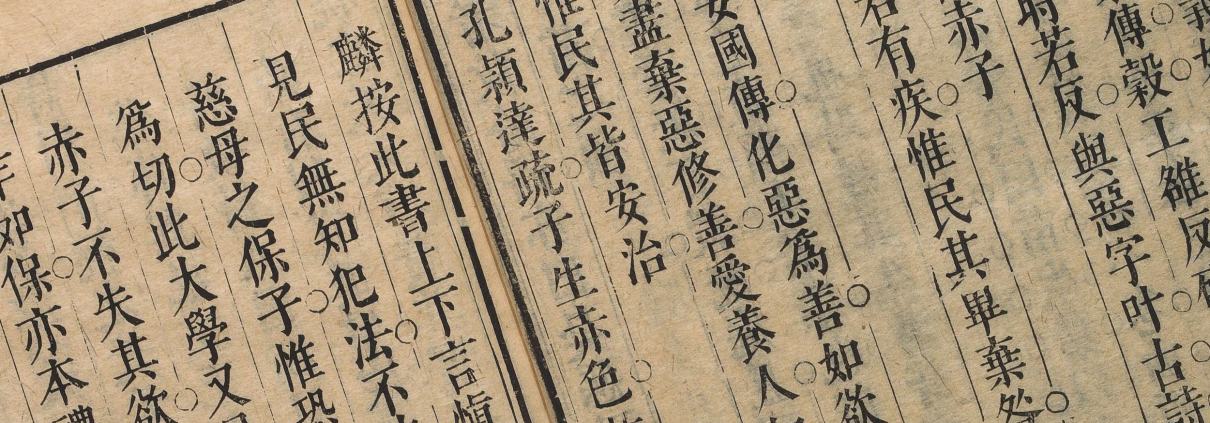 傳穀工雖反
時若反與惡字叶古詩
赤子
若有疾惟民其畢棄
安國傳化惡爲善如欲
盡棄惡修善愛養人
惟民其皆安治
孔穎達疏子生赤色
麟按此書上下言愼
見民無知犯法不
慈母之保子惟恐
爲切此大學又
赤子不失其欲
卽保亦本